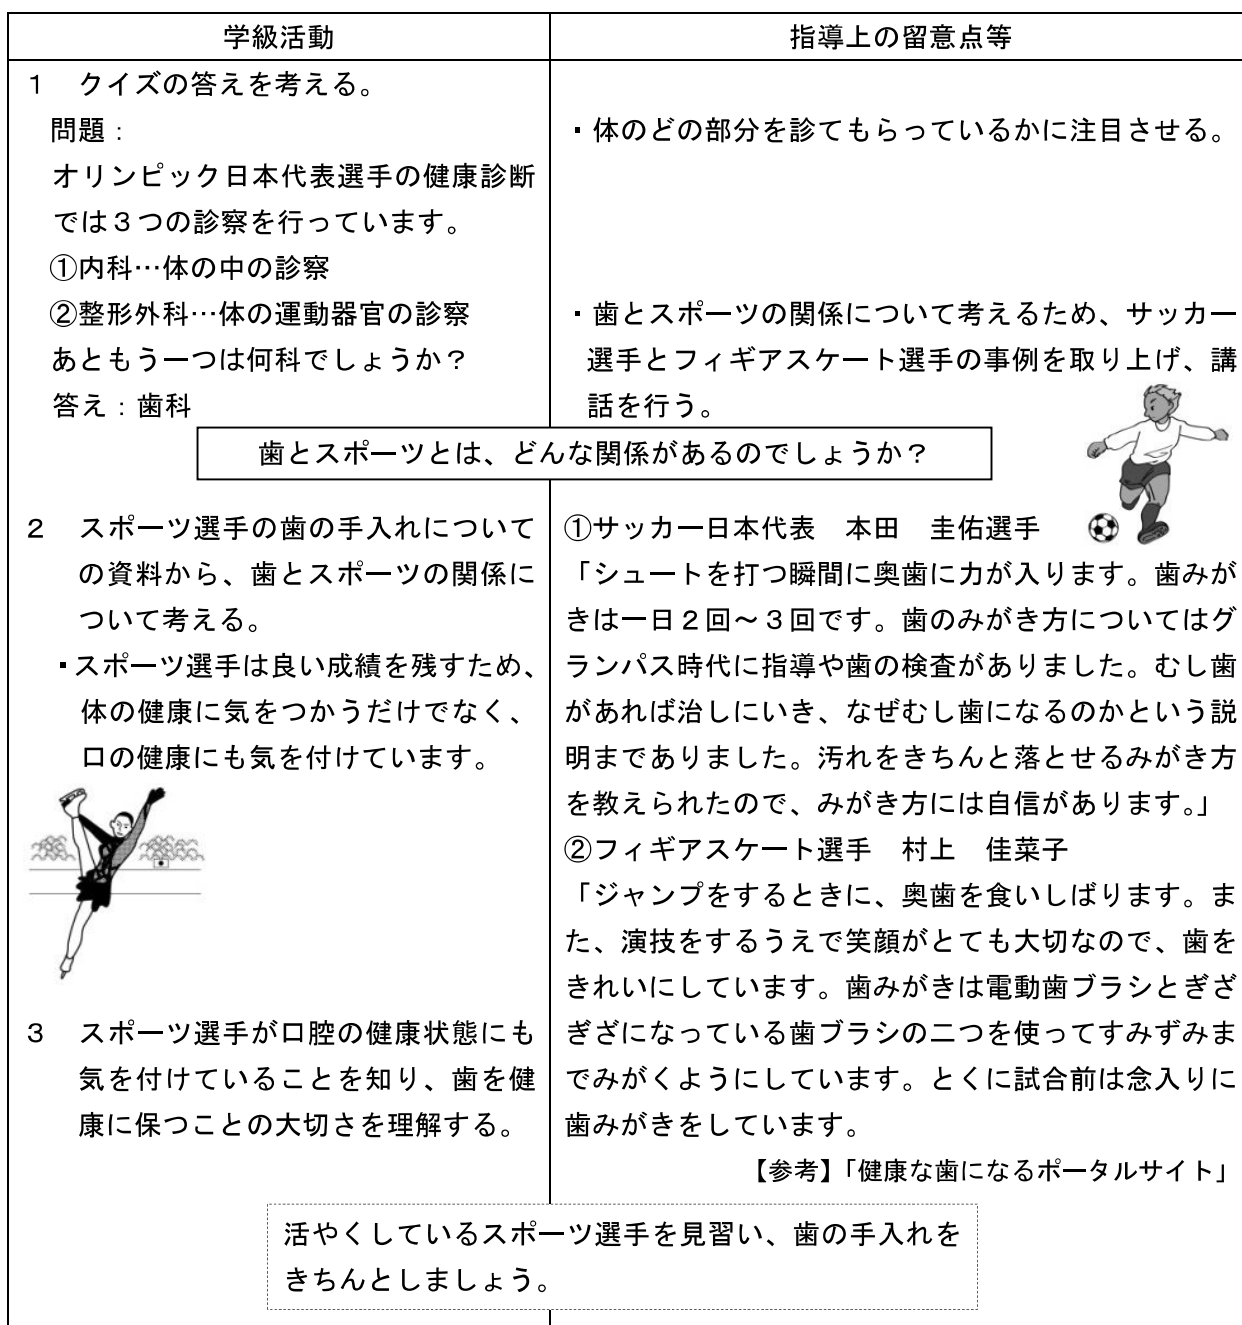 学級活動
指導上の留意点等
1　クイズの答えを考える。
問題：
オリンピック日本代表選手の健康診断
では３つの診察を行っています。
①内科…体の中の診察
②整形外科…体の運動器官の診察
あともう一つは何科でしょうか？
答え：歯科
・体のどの部分を診てもらっているかに注目させる。
・歯とスポーツの関係について考えるため、サッカー
選手とフィギアスケート選手の事例を取り上げ、講
話を行う。
歯とスポーツとは、どんな関係があるのでしょうか？
2　スポーツ選手の歯の手入れについて
の資料から、歯とスポーツの関係に
ついて考える。
・スポーツ選手は良い成績を残すため、
体の健康に気をつかうだけでなく、
口の健康にも気を付けています。
3　スポーツ選手が口腔の健康状態にも
気を付けていることを知り、歯を健
康に保つことの大切さを理解する。
①サッカー日本代表　本田　圭佑選手
「シュートを打つ瞬間に奥歯に力が入ります。歯みが
きは一日２回～３回です。歯のみがき方についてはグ
ランパス時代に指導や歯の検査がありました。むし歯
があれば治しにいき、なぜむし歯になるのかという説
明までありました。汚れをきちんと落とせるみがき方
を教えられたので、みがき方には自信があります。」
②フィギアスケート選手　村上　佳菜子
「ジャンプをするときに、奥歯を食いしばります。ま
た、演技をするうえで笑顔がとても大切なので、歯を
きれいにしています。歯みがきは電動歯ブラシとぎざ
ぎざになっている歯ブラシの二つを使ってすみずみま
でみがくようにしています。とくに試合前は念入りに
歯みがきをしています。
【参考】「健康な歯になるポータルサイト」
活やくしているスポーツ選手を見習い、歯の手入れを
きちんとしましょう。